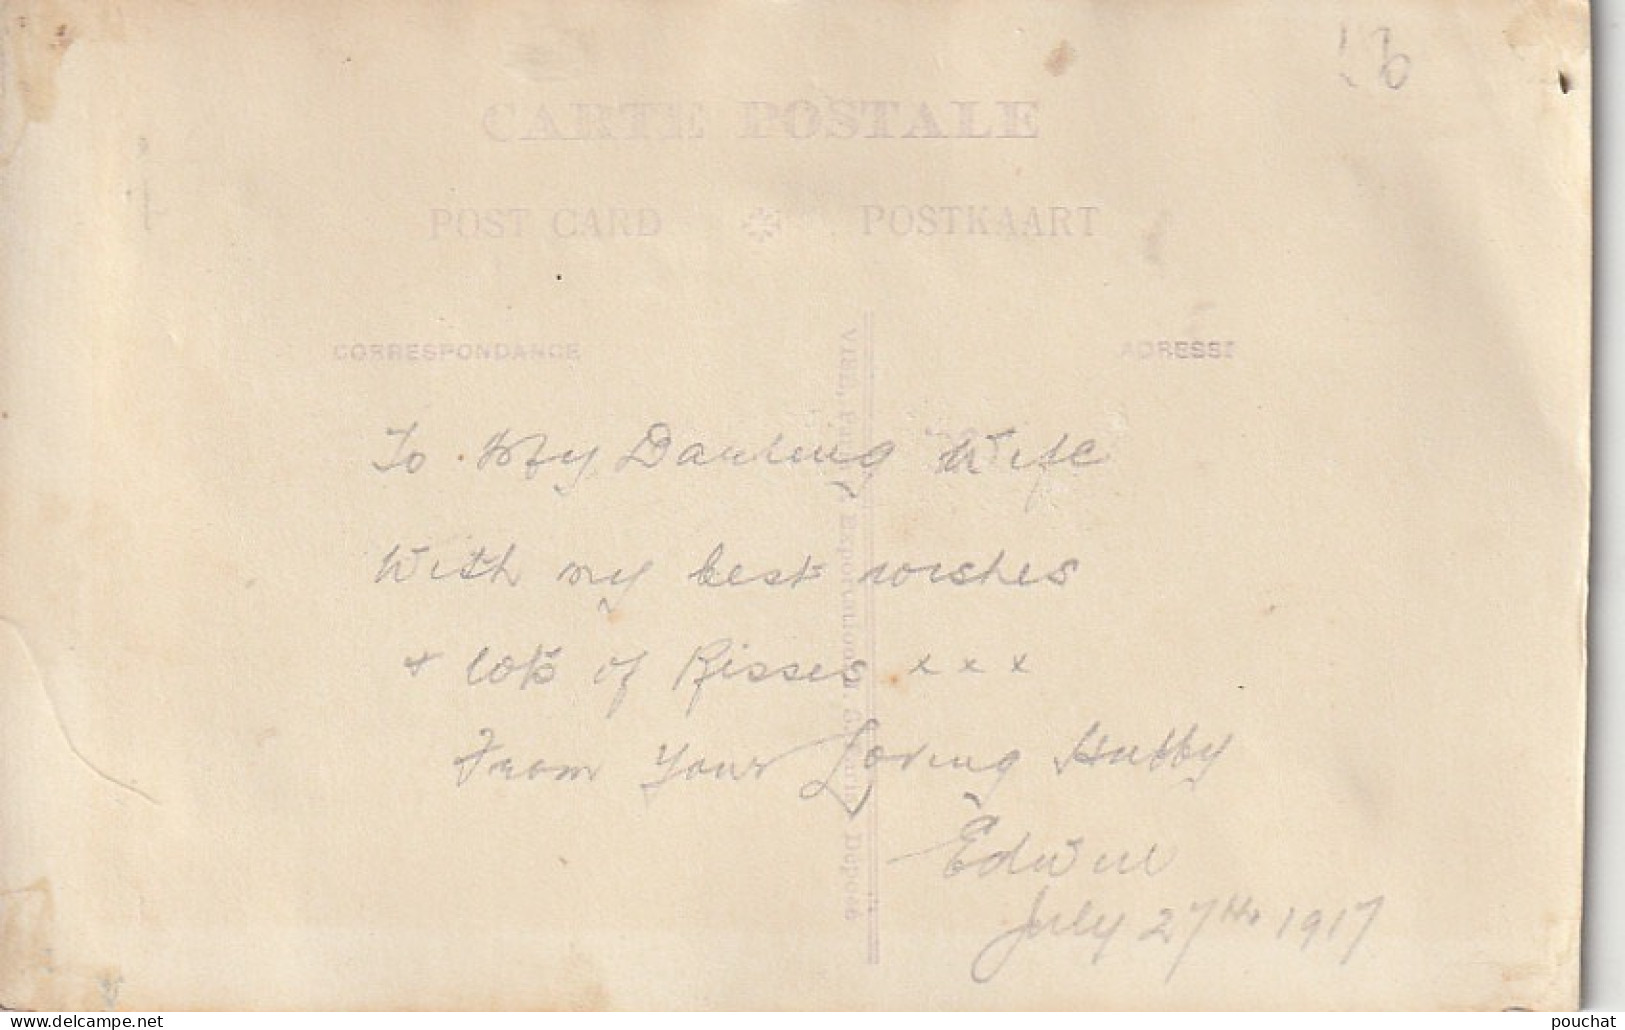 CARTE POSTALE
POST CARD POSTKAART
CORRESPONDANCE
ADRESSE
To My Darling Wife
With my best wishes
& lots of Kisses x x x
From Your Loving Hubby
Edwin
July 27th 1917
www.delcampe.net
pouchat